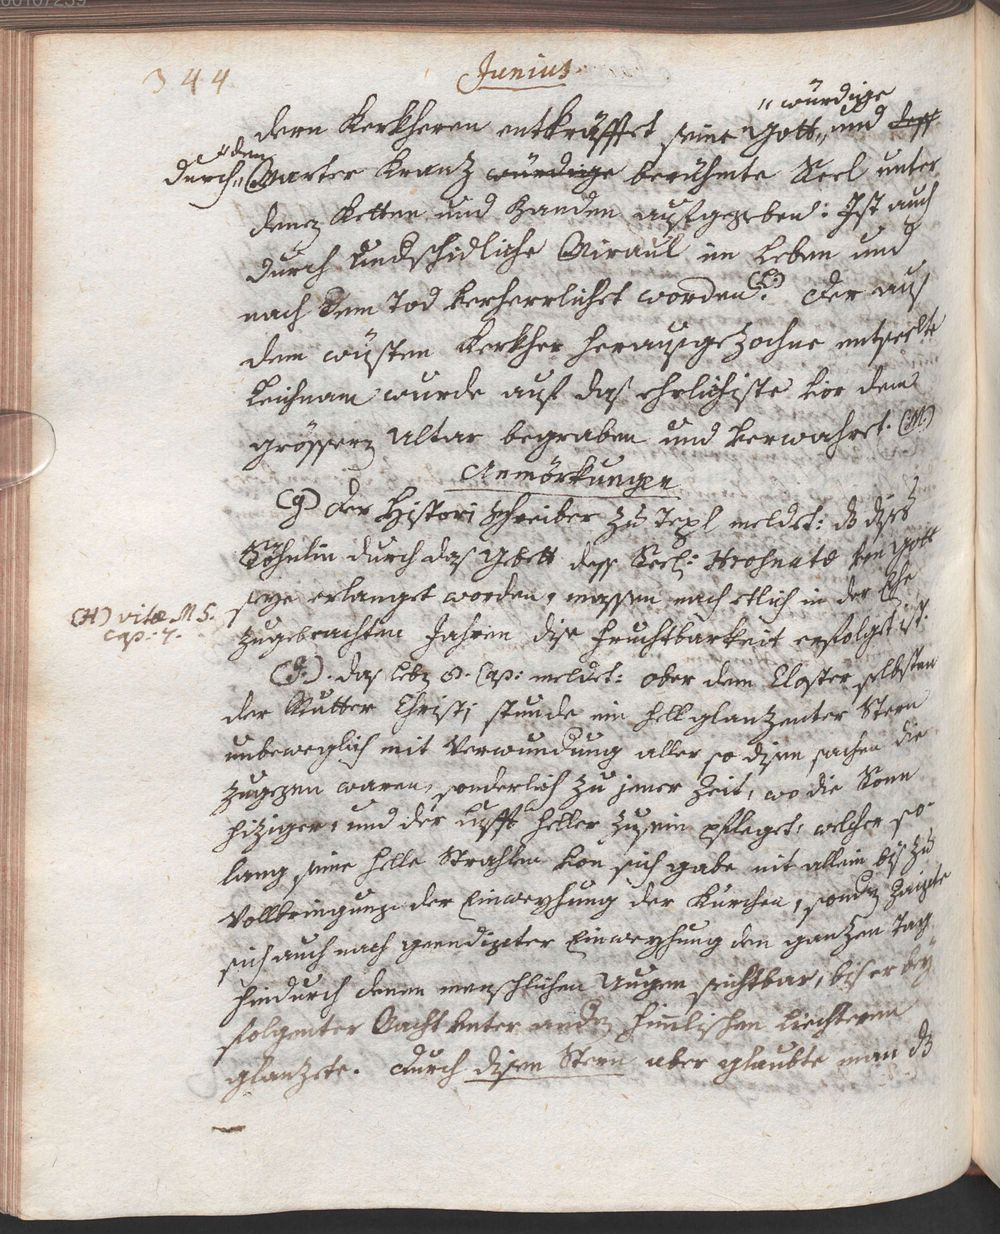 344 Junius
" würdige
dern Kerkheren entkräfftet seine Gott„ und dess
durch„ den
Marter Krantz würdige berühmte Seel unter
denen Ketten und Banden aufgegeben: Ist auch
durch undschidliche Miraul im Leben und
nach dem Tod verherrlichet worden. Der aus
dem wüsten Kerkher herausgezohne entseelte
Leichnam wurde auf das ehrlichiste vor dem
grössern Altar begraben und verwahret. (M.)
Anmörkungen
(g) Der Histori schreiber zu Tepl meldet: ds dises
Söhnlin durch das Gebett dess Seel: Hrohnatæ von Gott
seye erlanget worden, massen nach etlich in der Ehe
(H) vitæ MS.
cap: 7.
zugebrachten Jahren dise fruchtbarkeit erfolget ist.
das Leb: 8. Cap: meldet: ober dem Closter selbsten
der Mutter Christi stunde ein hellglantzenter Stern
unbeweglich mit Verwundung aller so disen sachen die
zugegen waren, sonderlich zu jener Zeit, wo die Sonn
hiziger, und der Lufft heller zusein pfleget, welcher so
lang seine helle Strahlen von sich gabe nit allein bis zu
Vollbringung der Einweyhung der Kürchen, sondern zaigte
sich auch nach geendigter Einweyhung den gantzen Tag
hindurch denen menschlichen Augen sichtbar, bis er bey
folgenter Nacht unter andern himmlischen Liechteren
glantzete. durch disen Stern aber glaubte man ds